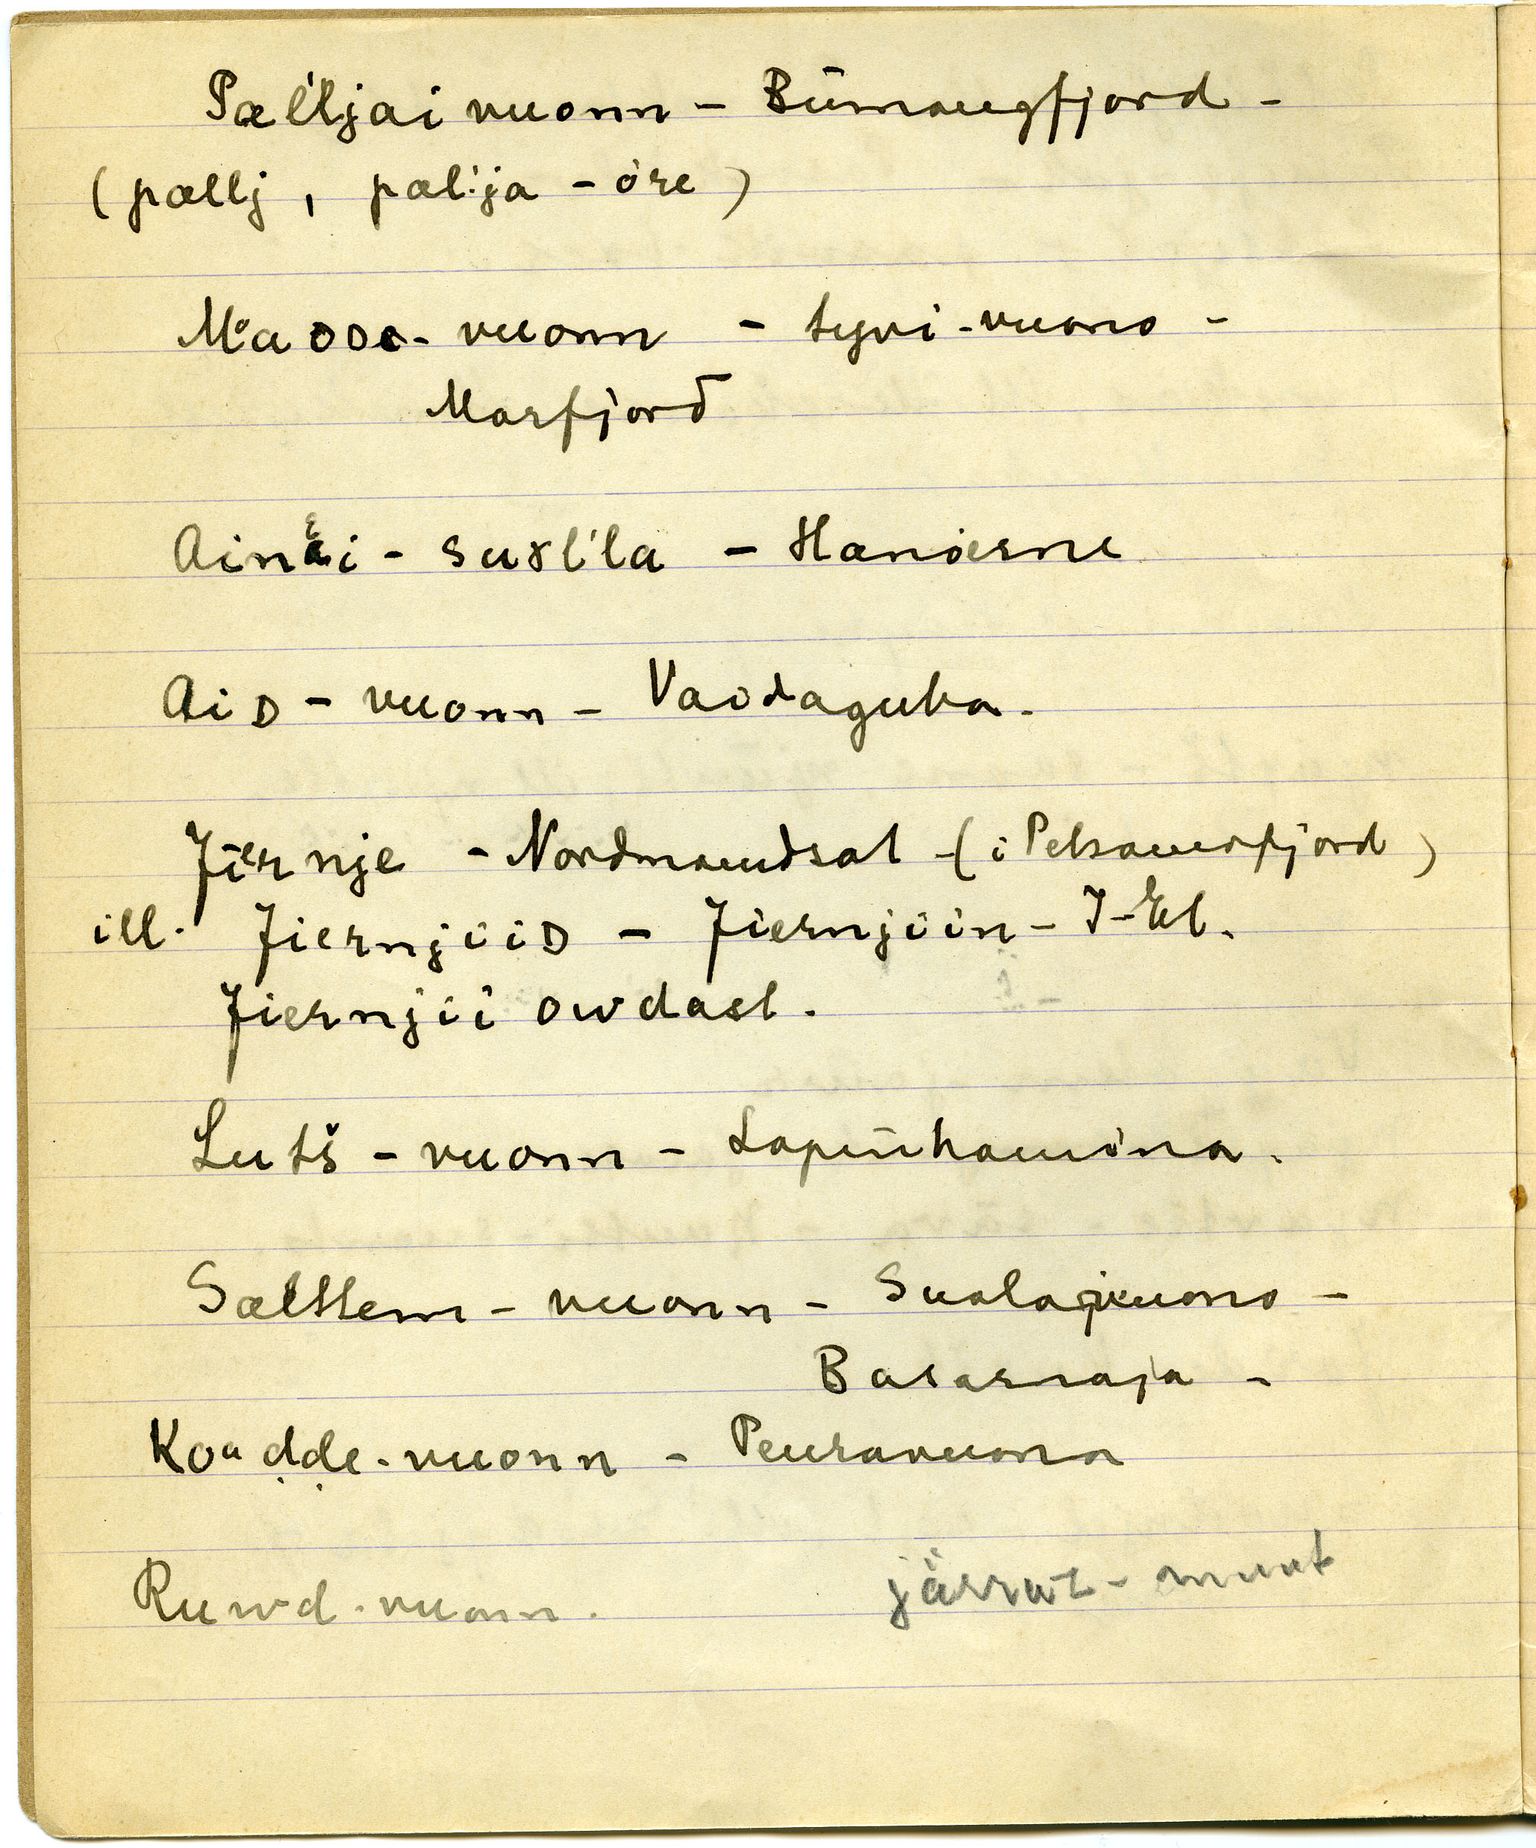 Pæl'ljai vuonn - Būmangfjord -
(pællj, pæl'ja - öre)
Mᵒaᴅᴅe - vuonn - tyvi-vuono -
Marfjord
Ainɛi - suɤl'la - Hanøerne
Aiᴅ - vuonn - Vaidaguba.
Jiernje - Nordmandsat (i Petsamofjord)
ill. Jiernjiiᴅ - Jiernjiin - I-El.
Jiernjii owdast.
Lutš - vuonn - Lapinhamina.
Sælttem - vuonn - Suolavuono -
Basarnaja -
Koᵃḍḍe-vuonn - Peuravuono
Ruwd-vuonn. järraz - muut